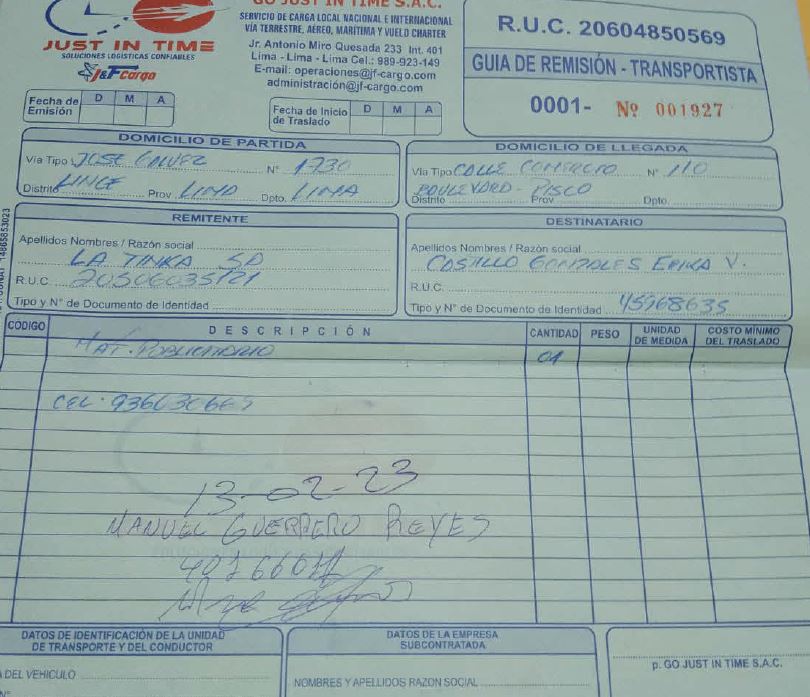 GO JUST IN TIME S.A.C.
SERVICIO DE CARGA LOCAL NACIONAL E INTERNACIONAL
VÍA TERRESTRE, AEREO, MARITIMA Y VUELO CHARTER
Jr. Antonio Miro Quesada 233 Int. 401
Lima - Lima - Lima Cel.: 989-923-149
E-mail: operaciones@jf-cargo.com
administración@jf-cargo.com
JUST IN TIME
SOLUCIONES LOGISTICAS CONFIABLES
J&F cargo
R.U.C. 20604850569
GUIA DE REMISIÓN - TRANSPORTISTA
0001- Nº 001927
Fecha de Emisión D M A
Fecha de Inicio de Traslado D M A
DOMICILIO DE PARTIDA
Vía Tipo JOSE GALVEZ N° 1730
Distrito LINCE Prov LIMA Dpto. LIMA
DOMICILIO DE LLEGADA
Vía Tipo CALLE COMERCIO N° 110
BOULEVARD - PISCO
Distrito Prov Dpto.
REMITENTE
Apellidos Nombres / Razón social
LA TINKA SA
R.U.C.
Tipo y N° de Documento de Identidad
DESTINATARIO
Apellidos Nombres / Razón social
CASTILLO GONZALES ERIKA V.
R.U.C.
Tipo y N° de Documento de Identidad 45968635
CÓDIGO DESCRIPCIÓN CANTIDAD PESO UNIDAD DE MEDIDA COSTO MÍNIMO DEL TRASLADO
MAT. PUBLICITARIO 01
CEL.
13-02-23
MANUEL GUERRERO REYES
DATOS DE IDENTIFICACIÓN DE LA UNIDAD
DE TRANSPORTE Y DEL CONDUCTOR
DEL VEHICULO
DATOS DE LA EMPRESA
SUBCONTRATADA
NOMBRES Y APELLIDOS RAZON SOCIAL
p. GO JUST IN TIME S.A.C.